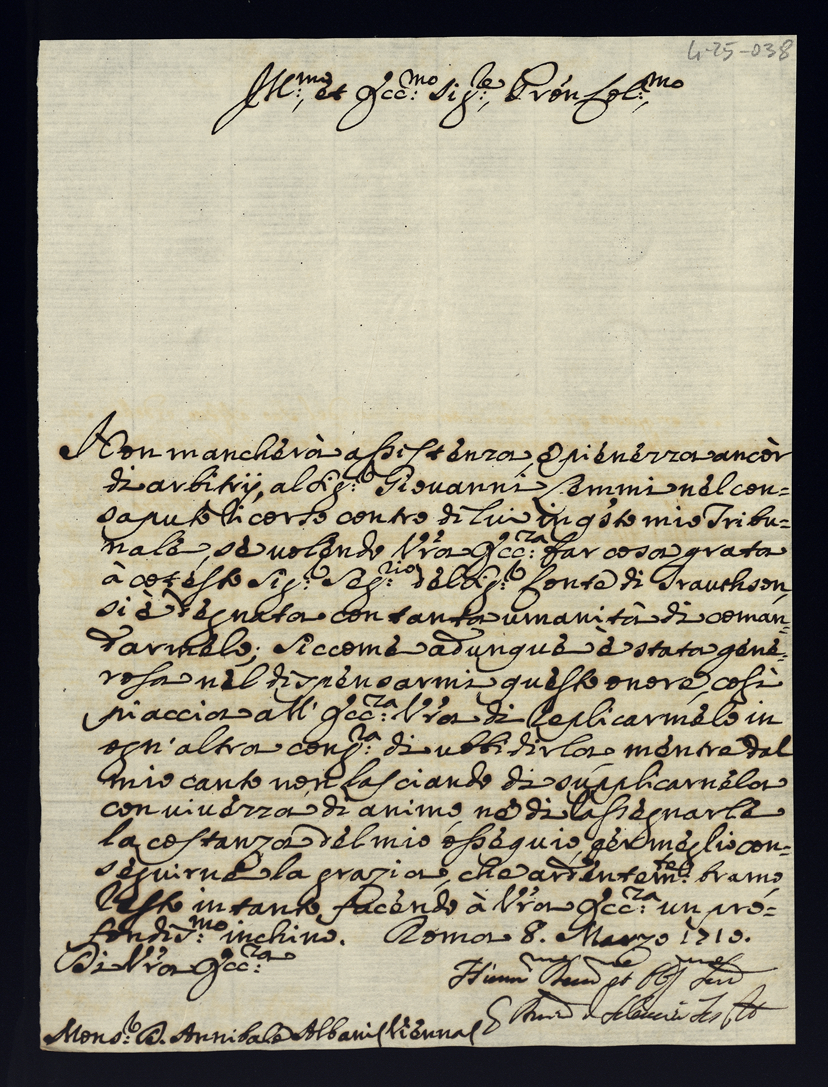 4-25-038
Ill.mo et Ecc.mo Sig.re, Prōn Col.mo
Non mancherà assistenza, e pienezza ancòr
di arbitrij, al Sig.r Giovanni Semmi nel con=
saputo ricorso contro di lui in q̃sto mio Tribu=
nale, se volendo Vr̃a Ecc.za far cosa grata
à cotesto Sig.r Seg.rio del Sig.r Conte di Trauthson,
si è degnata con tanta umanità di coman=
darmelo; Siccome adunque è stata gene=
rosa nel dispensarmi questo onore, così
piaccia all' Ecc.za Vr̃a di replicarmelo in
ogn' altra cong.ra di ubbidirla mentre dal
mio canto non lasciando di supplicarnela
con vivezza di animo, nè di rassegnarle
la costanza del mio ossequio, per meglio con=
seguirne la grazia, che ardentem.te bramo
resto intanto facendo à Vr̃a Ecc.za un pro=
fondiss.mo inchino. Roma 8. Marzo 1710.
Di Vr̃a Ecc.za
Mons.r D. Annibale Albani Vienna